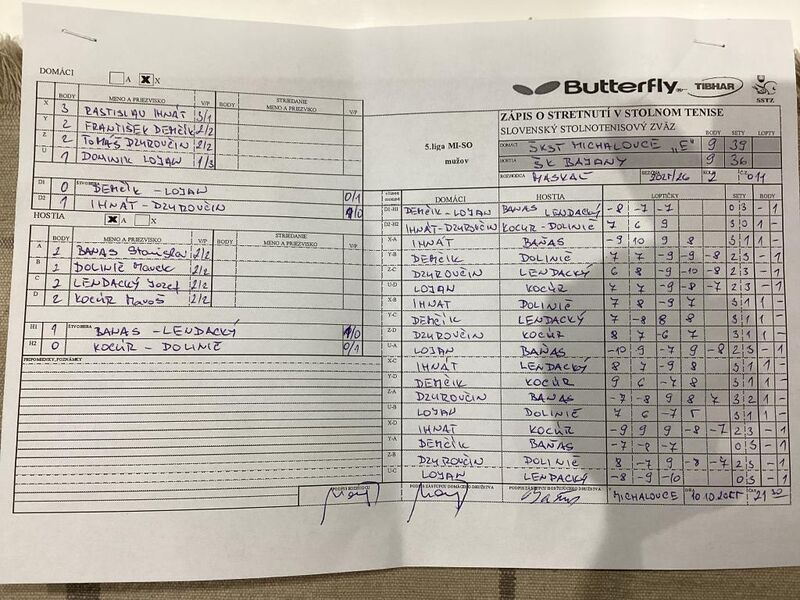 DOMÁCI A X X
BODY MENO A PRIEZVISKO V/P BODY STRIEDANIE MENO A PRIEZVISKO V/P
X 3 RASTISLAV IHNÁT 3/1
Y 2 FRANTIŠEK DEMČIK 2/2
Z 2 TOMÁŠ DZUROVČIN 2/2
U 1 DOMINIK LOJAN 1/3
D1 0 ŠTVORHRA DEMČIK - LOJAN 0/1
D2 1 IHNÁT - DZUROVČIN 1/0
HOSTIA X A X
BODY MENO A PRIEZVISKO V/P BODY STRIEDANIE MENO A PRIEZVISKO V/P
A 2 BAŇAS Stanislav 2/2
B 2 DOLINIČ Marek 2/2
C 2 LENDACKÝ Jozef 2/2
D 2 KOCÚR Maroš 2/2
H1 1 ŠTVORHRA BAŇAS - LENDACKÝ 1/0
H2 0 KOCÚR - DOLINIČ 0/1
PRIPOMIENKY, POZNÁMKY
PODPIS ROZHODCU
Butterfly TIBHAR SSTZ
5.liga MI-SO
mužov
ZÁPIS O STRETNUTÍ V STOLNOM TENISE
SLOVENSKÝ STOLNOTENISOVÝ ZVÄZ BODY SETY LOPTY
DOMÁCI ŠKST MICHALOVCE "E" 9 39
HOSTIA ŠK BAJANY 9 36
ROZHODCA MASKAĽ SEZÓNA 2025/26 KOLO 2 Č.Z. 011
DOMÁCI HOSTIA LOPTIČKY SETY BODY
D1-H1 DEMČIK - LOJAN BAŇAS LENDACKÝ -8 -7 -7 0 3 - 1
D2-H2 IHNÁT-DZUROVČIN KOCÚR - DOLINIČ 7 6 9 3 0 1 -
X-A IHNÁT BAŇAS -9 10 9 8 3 1 1 -
Y-B DEMČIK DOLINIČ 7 7 -9 -9 -8 2 3 - 1
Z-C DZUROVČIN LENDACKÝ 6 8 -9 -10 -8 2 3 - 1
U-D LOJAN KOCÚR 7 -9 7 -8 -7 2 3 - 1
X-B IHNÁT DOLINIČ 7 8 -9 7 3 1 1 -
Y-C DEMČIK LENDACKÝ 7 -8 8 8 3 1 1 -
Z-D DZUROVČIN KOCÚR 8 7 -6 7 3 1 1 -
U-A LOJAN BAŇAS -10 9 -7 9 -8 2 3 - 1
X-C IHNÁT LENDACKÝ 8 7 -9 8 3 1 1 -
Y-D DEMČIK KOCÚR 9 6 -7 8 3 1 1 -
Z-A DZUROVČIN BAŇAS -7 -8 9 8 7 3 2 1 -
U-B LOJAN DOLINIČ 7 6 -7 5 3 1 1 -
X-D IHNÁT KOCÚR -9 9 9 -8 -7 2 3 - 1
Y-A DEMČIK BAŇAS -7 -8 -7 0 3 - 1
Z-B DZUROVČIN DOLINIČ 8 -7 9 -8 -7 2 3 - 1
U-C LOJAN LENDACKÝ -8 -9 -10 0 3 - 1
PODPIS ZÁSTUPCU DOMÁCEHO DRUŽSTVA PODPIS ZÁSTUPCU HOSŤUJÚCEHO DRUŽSTVA V MICHALOVCE DŇA 10.10.2025 ČAS 21 30